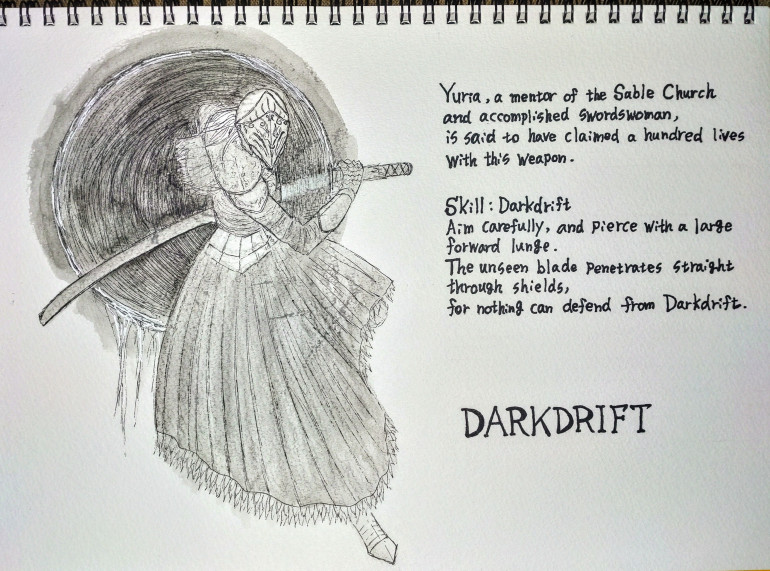 Yuria, a mentor of the Sable Church
and accomplished swordswoman,
is said to have claimed a hundred lives
with this weapon.
Skill: Darkdrift
Aim carefully, and pierce with a large
forward lunge.
The unseen blade penetrates straight
through shields,
for nothing can defend from Darkdrift.
DARKDRIFT